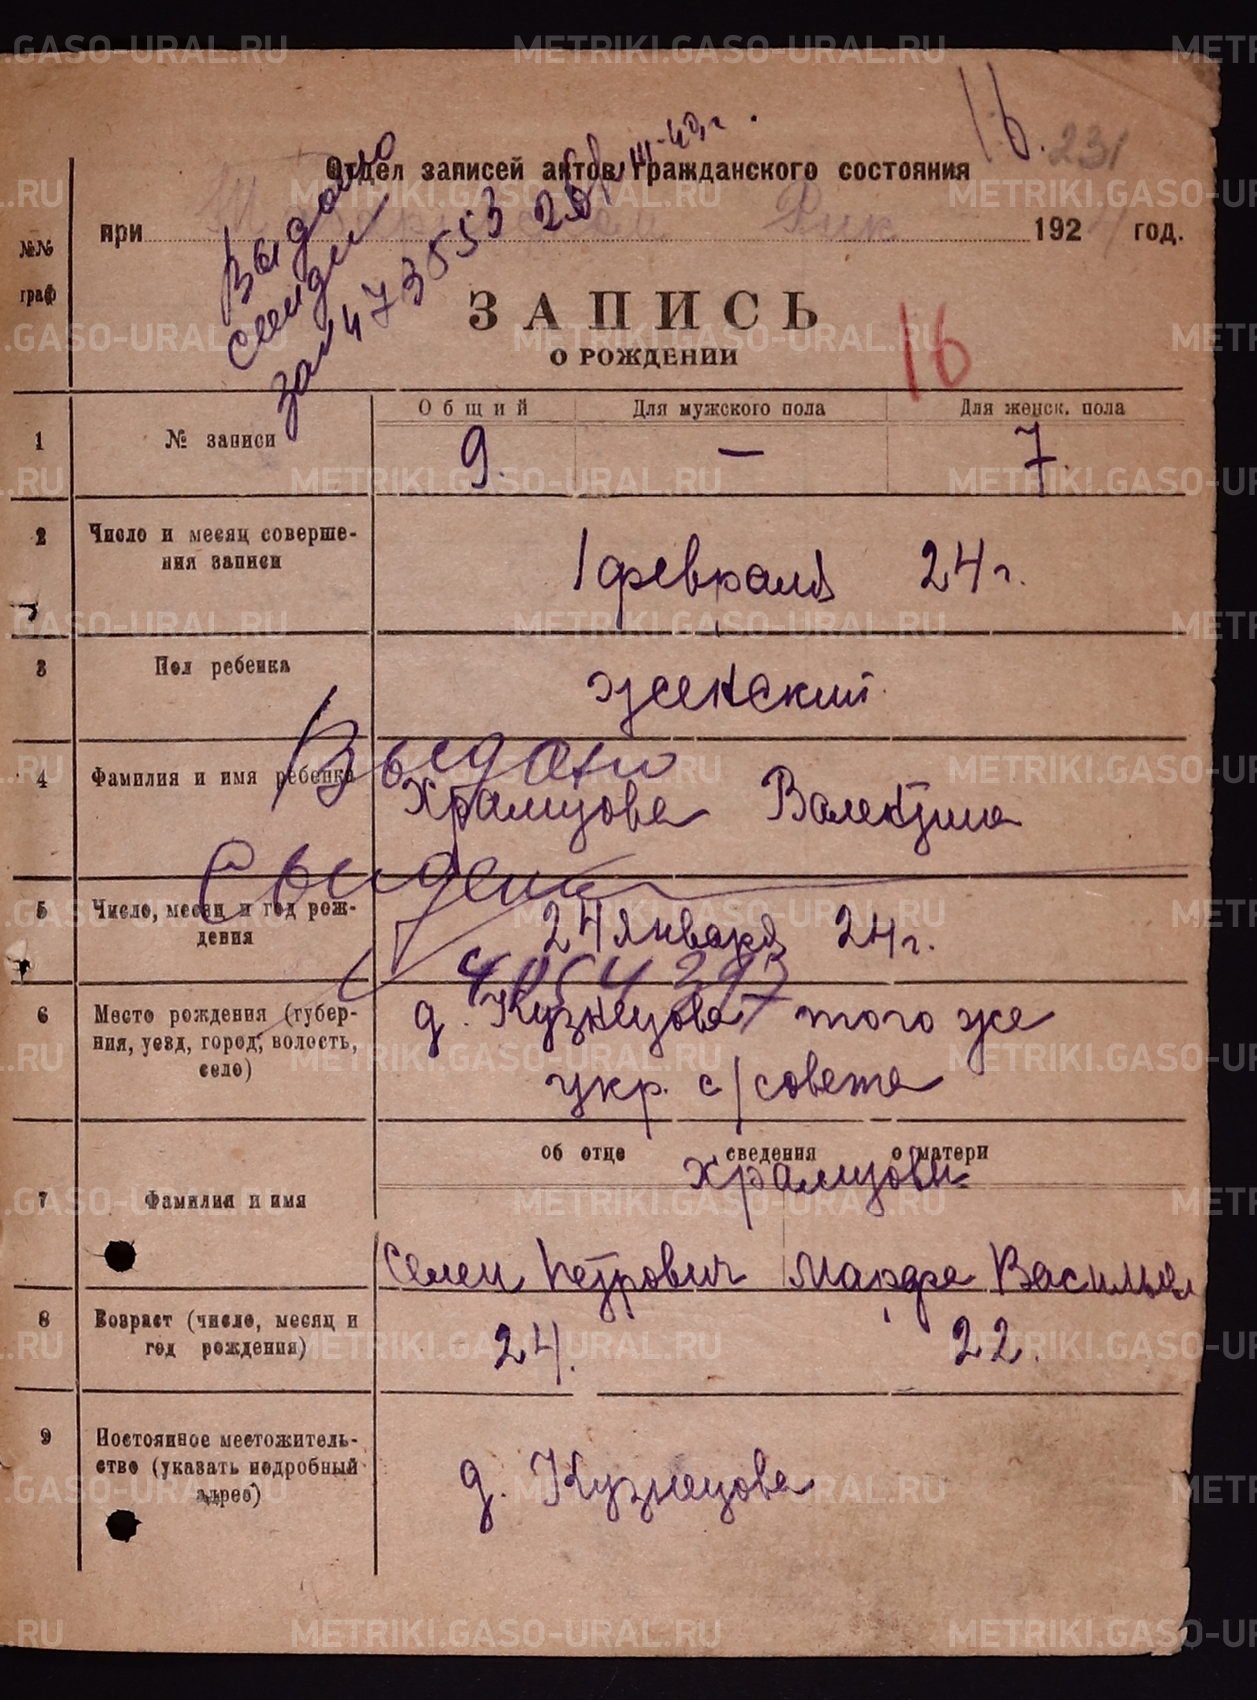 METRIKI.GASO-URAL.RU
16. 231
Отдел записей актов гражданского состояния
при Рик 1924 год.
Выдано
за № 473553 28/III-40 г.
№№ граф
ЗАПИСЬ
О РОЖДЕНИИ
16
Общий Для мужского пола Для женск. пола
1 № записи 9. — 7.
2 Число и месяц соверше-
ния записи
1 февраля 24 г.
3 Пол ребенка женский
Выдано
4 Фамилия и имя ребенка Храмцова Валентина
5 Число, месяц и год рож-
дения
24 января 24 г.
6 Место рождения (губер-
ния, уезд, город, волость,
село)
д. Кузнецова того же
укр. с/совета
об отце сведения о матери
Храмцовы
7 Фамилия и имя
Семен Петрович Марфа Васильев
8 Возраст (число, месяц и
год рождения)
24. 22.
9 Постоянное местожитель-
ство (указать подробный
адрес)
д. Кузнецова